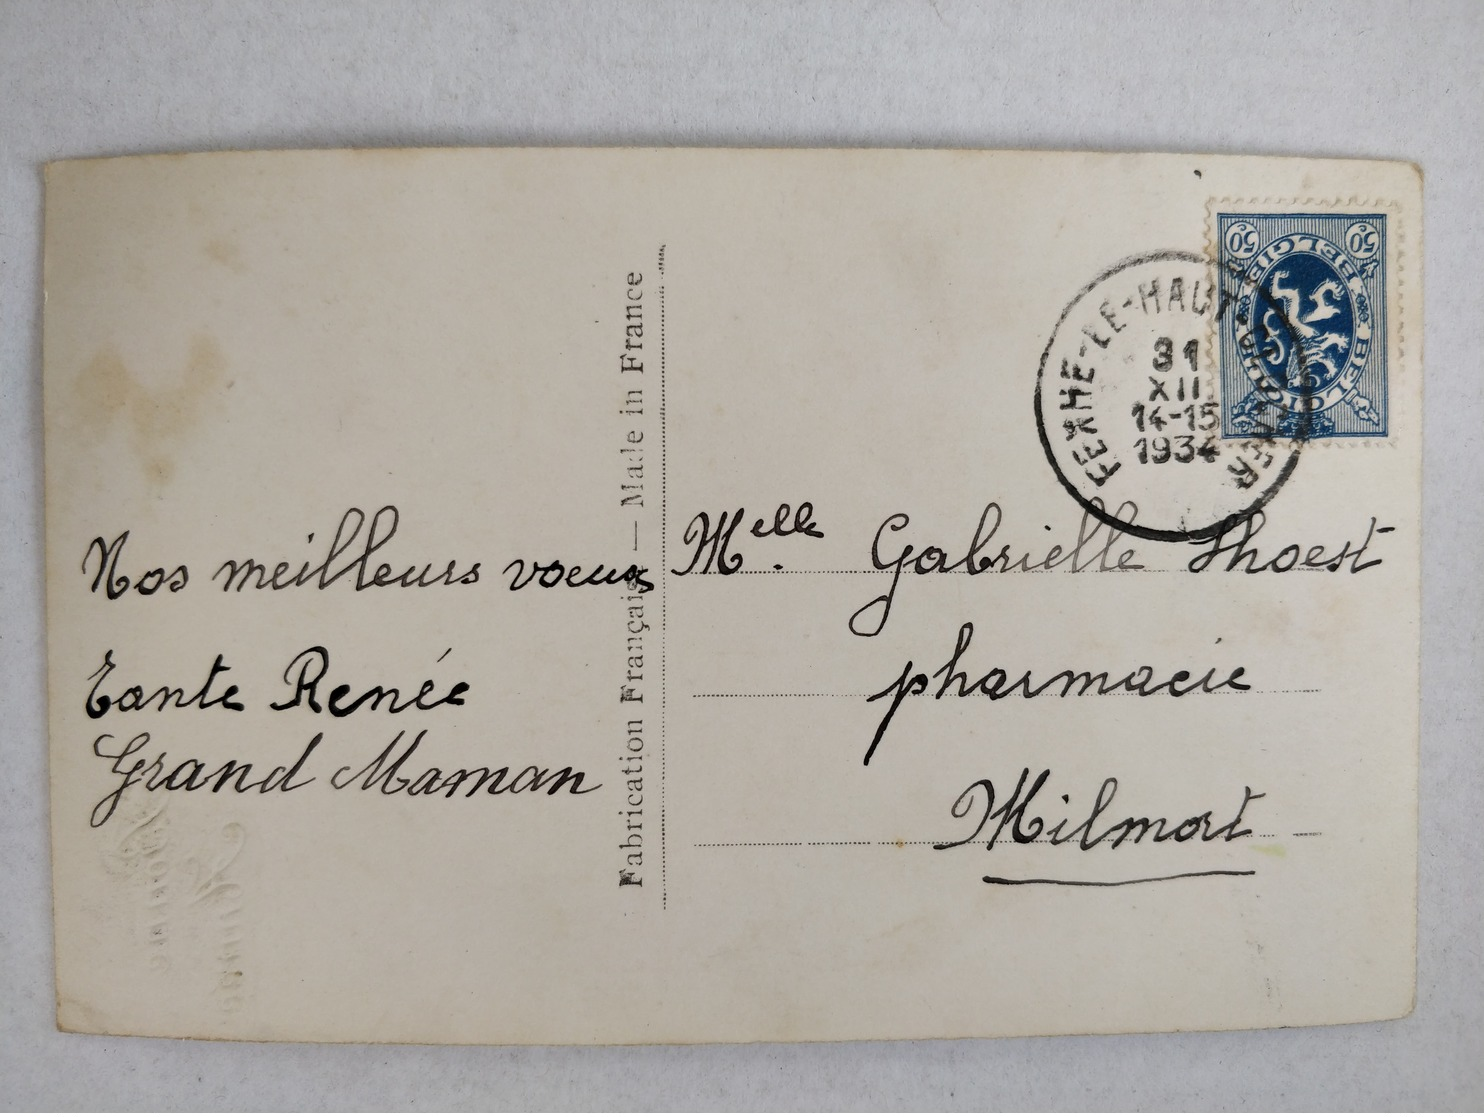 Nos meilleurs voeux
Tante Renée
Grand Maman
Fabrication Française — Made in France
Melle. Gabrielle Thoest
pharmacie
Milmort
FEXHE-LE-HAUT-CLOCHER
31
XII
14-15
1934
50c 50c
BELGIE BELGIQUE
Bonne
Année